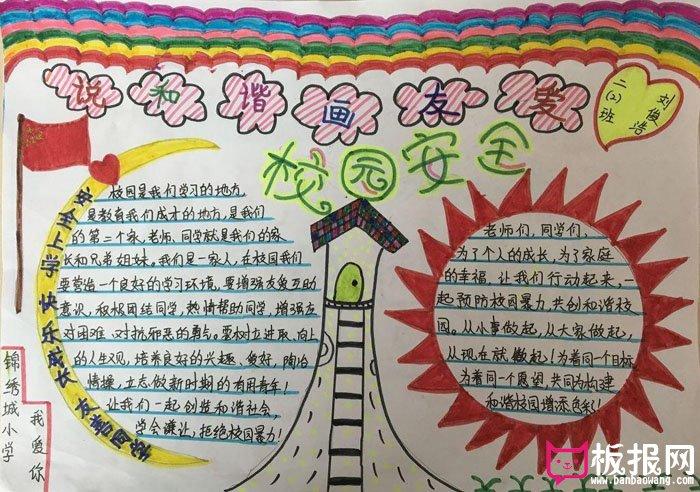 说和谐画友爱
二(2)班
刘俊浩
校园安全
安全上学 快乐成长 友善同学
校园是我们学习的地方,
是教育我们成才的地方,是我们
的第二个家,老师、同学就是我们的家
长和兄弟姐妹。我们是一家人,在校园我们
要营造一个良好的学习环境,要增强友爱互助
意识,积极团结同学,热情帮助同学,增强友
对困难、对抗邪恶的勇气。要树立进取、向上
的人生观,培养良好的兴趣、爱好,陶冶
情操,立志做新时期的有用青年!
让我们一起创造和谐社会,
学会谦让,拒绝校园暴力!
老师们,同学们,
为了个人的成长,为了家庭
的幸福,让我们行动起来,一
起预防校园暴力,共创和谐校
园。从小事做起,从大家做起,
从现在就做起!为着同一个目标
为着同一个愿望,共同为构建
和谐校园增添色彩!
锦绣城小学
我爱你
板报网
www.banbaowang.com